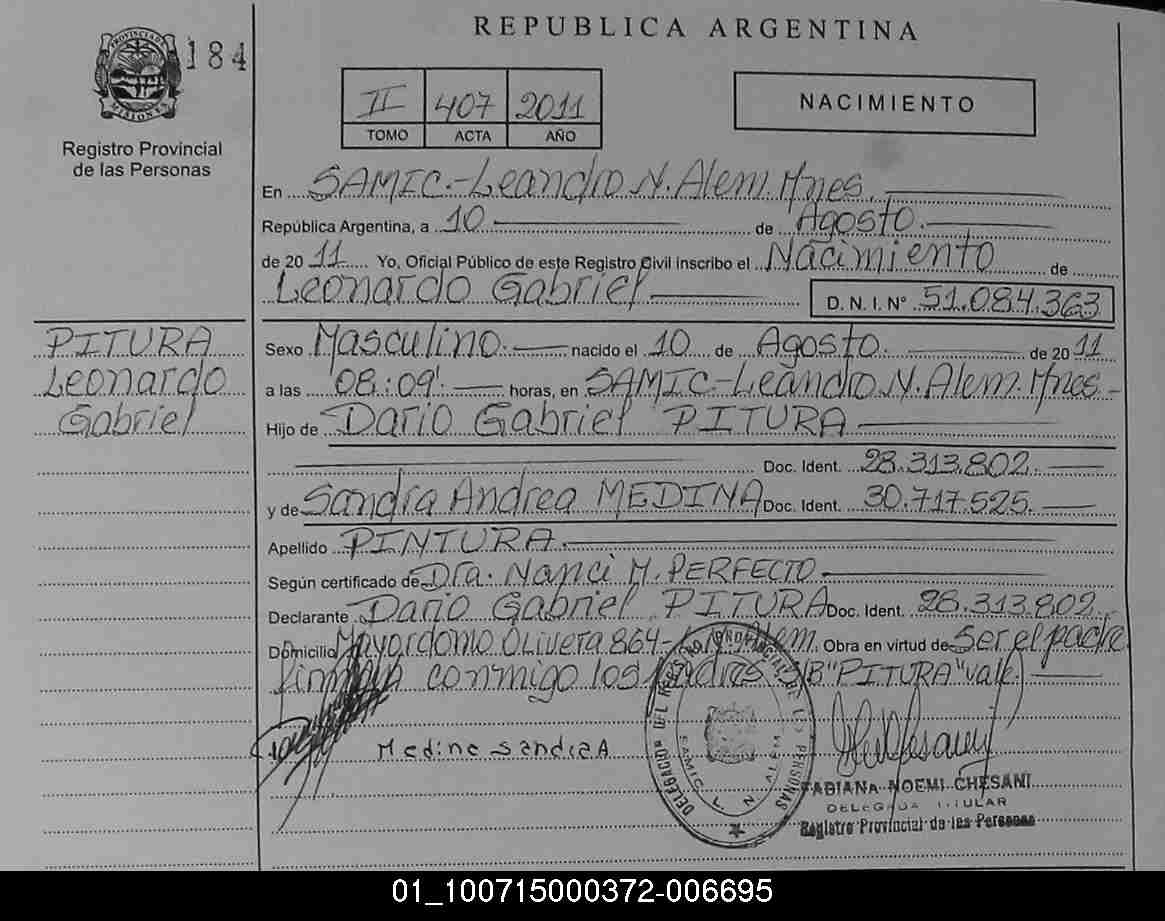 REPUBLICA ARGENTINA
PROVINCIA DE MISIONES
184
Registro Provincial
de las Personas
II 407 2011
TOMO ACTA AÑO
NACIMIENTO
En SAMIC.-Leandro N. Alem. Mnes.
República Argentina, a 10 de Agosto.
de 2011 Yo, Oficial Público de este Registro Civil inscribo el Nacimiento de
Leonardo Gabriel D. N. I. Nº 51.084.363
PITURA
Leonardo
Gabriel
Sexo Masculino. nacido el 10 de Agosto. de 2011
a las 08:09'. horas, en SAMIC-Leandro N. Alem. Mnes.-
Hijo de Dario Gabriel PITURA
Doc. Ident. 28.313.802.
y de Sandra Andrea MEDINA Doc. Ident. 30.717.525.
Apellido PINTURA.
Según certificado de Dra. Nanci M. PERFECTO
Declarante Dario Gabriel PITURA Doc. Ident. 28.313.802.
Domicilio Mayordomo Olivera 864- L.N. Alem. Obra en virtud de Ser el padre
firman conmigo los padres NB "PITURA" vale.)
Medina Sandra A
DELEGACION DEL REGISTRO PROVINCIAL DE LAS PERSONAS
SAMIC L. N. ALEM
FABIANA NOEMI CHESANI
DELEGADA TITULAR
Registro Provincial de las Personas
01_100715000372-006695